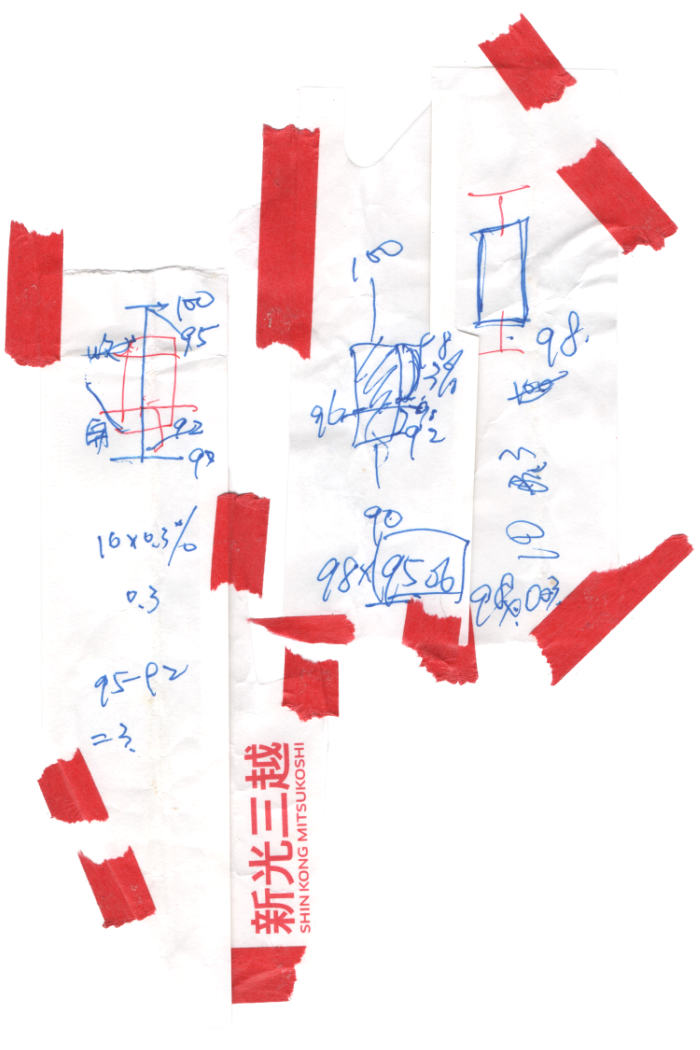 100
95
收
開
92
90
10×0.3%
0.3
95-92
=3
100
98
3%
96
92
90
98×9506
98.
3
98×0.03
新光三越
SHIN KONG MITSUKOSHI